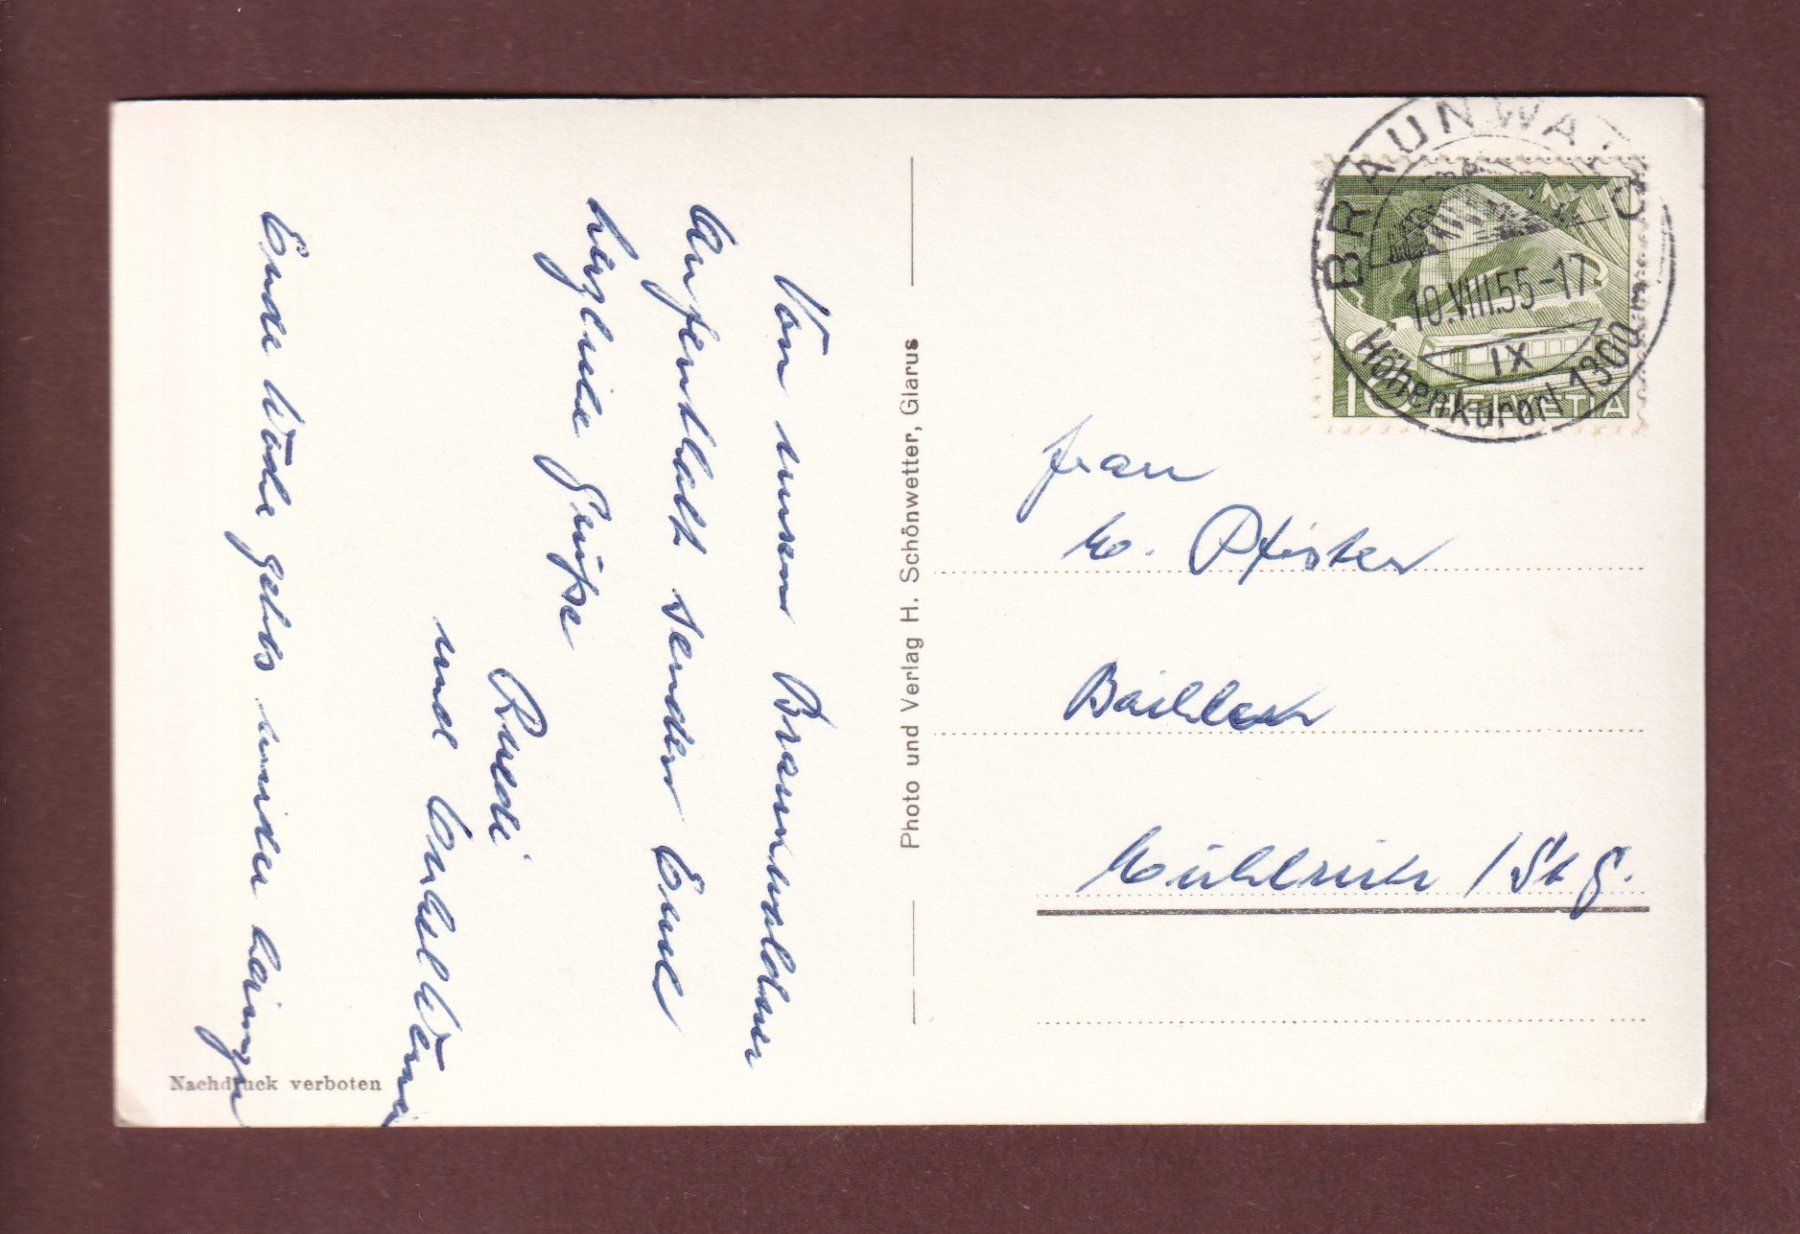 Von unserem Braunwaldner
Aufenthalt senden Euch
herzliche Grüsse
Ruedi
und
Ende Woche gehts wieder
Nachdruck verboten
Photo und Verlag H. Schönwetter, Glarus
BRAUNWALD
10.VIII.55-17
IX
Höhenkurort 1300 m
10 HELVETIA
Frau
M. Pfister
Bächler
Mühlrüti / St G.